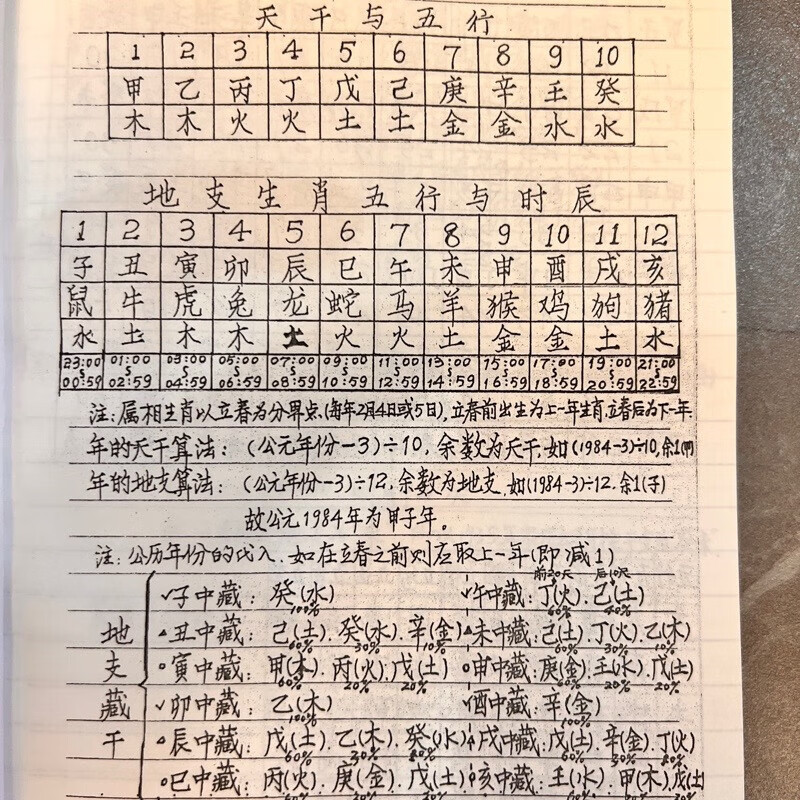 天干与五行
1 2 3 4 5 6 7 8 9 10
甲 乙 丙 丁 戊 己 庚 辛 壬 癸
木 木 火 火 土 土 金 金 水 水
地支生肖五行与时辰
1 2 3 4 5 6 7 8 9 10 11 12
子 丑 寅 卯 辰 巳 午 未 申 酉 戌 亥
鼠 牛 虎 兔 龙 蛇 马 羊 猴 鸡 狗 猪
水 土 木 木 土 火 火 土 金 金 土 水
23:00 01:00 03:00 05:00 07:00 09:00 11:00 13:00 15:00 17:00 19:00 21:00
00:59 02:59 04:59 06:59 08:59 10:59 12:59 14:59 16:59 18:59 20:59 22:59
注:属相生肖以立春为分界点.(每年2月4日或5日),立春前出生为上一年生肖.立春后为下一年.
年的天干算法:(公元年份-3)÷10,余数为天干.如(1984-3)÷10,余1(甲)
年的地支算法:(公元年份-3)÷12,余数为地支.如(1984-3)÷12.余1(子)
故公元1984年为甲子年。
注:公历年份的代入.如在立春之前则应取上一年(即减1)
前20天 后10天
子中藏:癸(水) 午中藏:丁(火).己(土)
100% 60% 40%
丑中藏:己(土).癸(水).辛(金) 未中藏:己(土).丁(火).乙(木)
60% 30% 10% 60% 30% 10%
寅中藏:甲(木).丙(火).戊(土) 申中藏:庚(金).壬(水).戊(土)
60% 20% 20% 60% 20% 20%
卯中藏:乙(木) 酉中藏:辛(金)
100% 100%
辰中藏:戊(土).乙(木).癸(水) 戌中藏:戊(土).辛(金).丁(火)
60% 30%
巳中藏:丙(火).庚(金).戊(土) 亥中藏:壬(水).甲(木).戊(土)
地支藏干